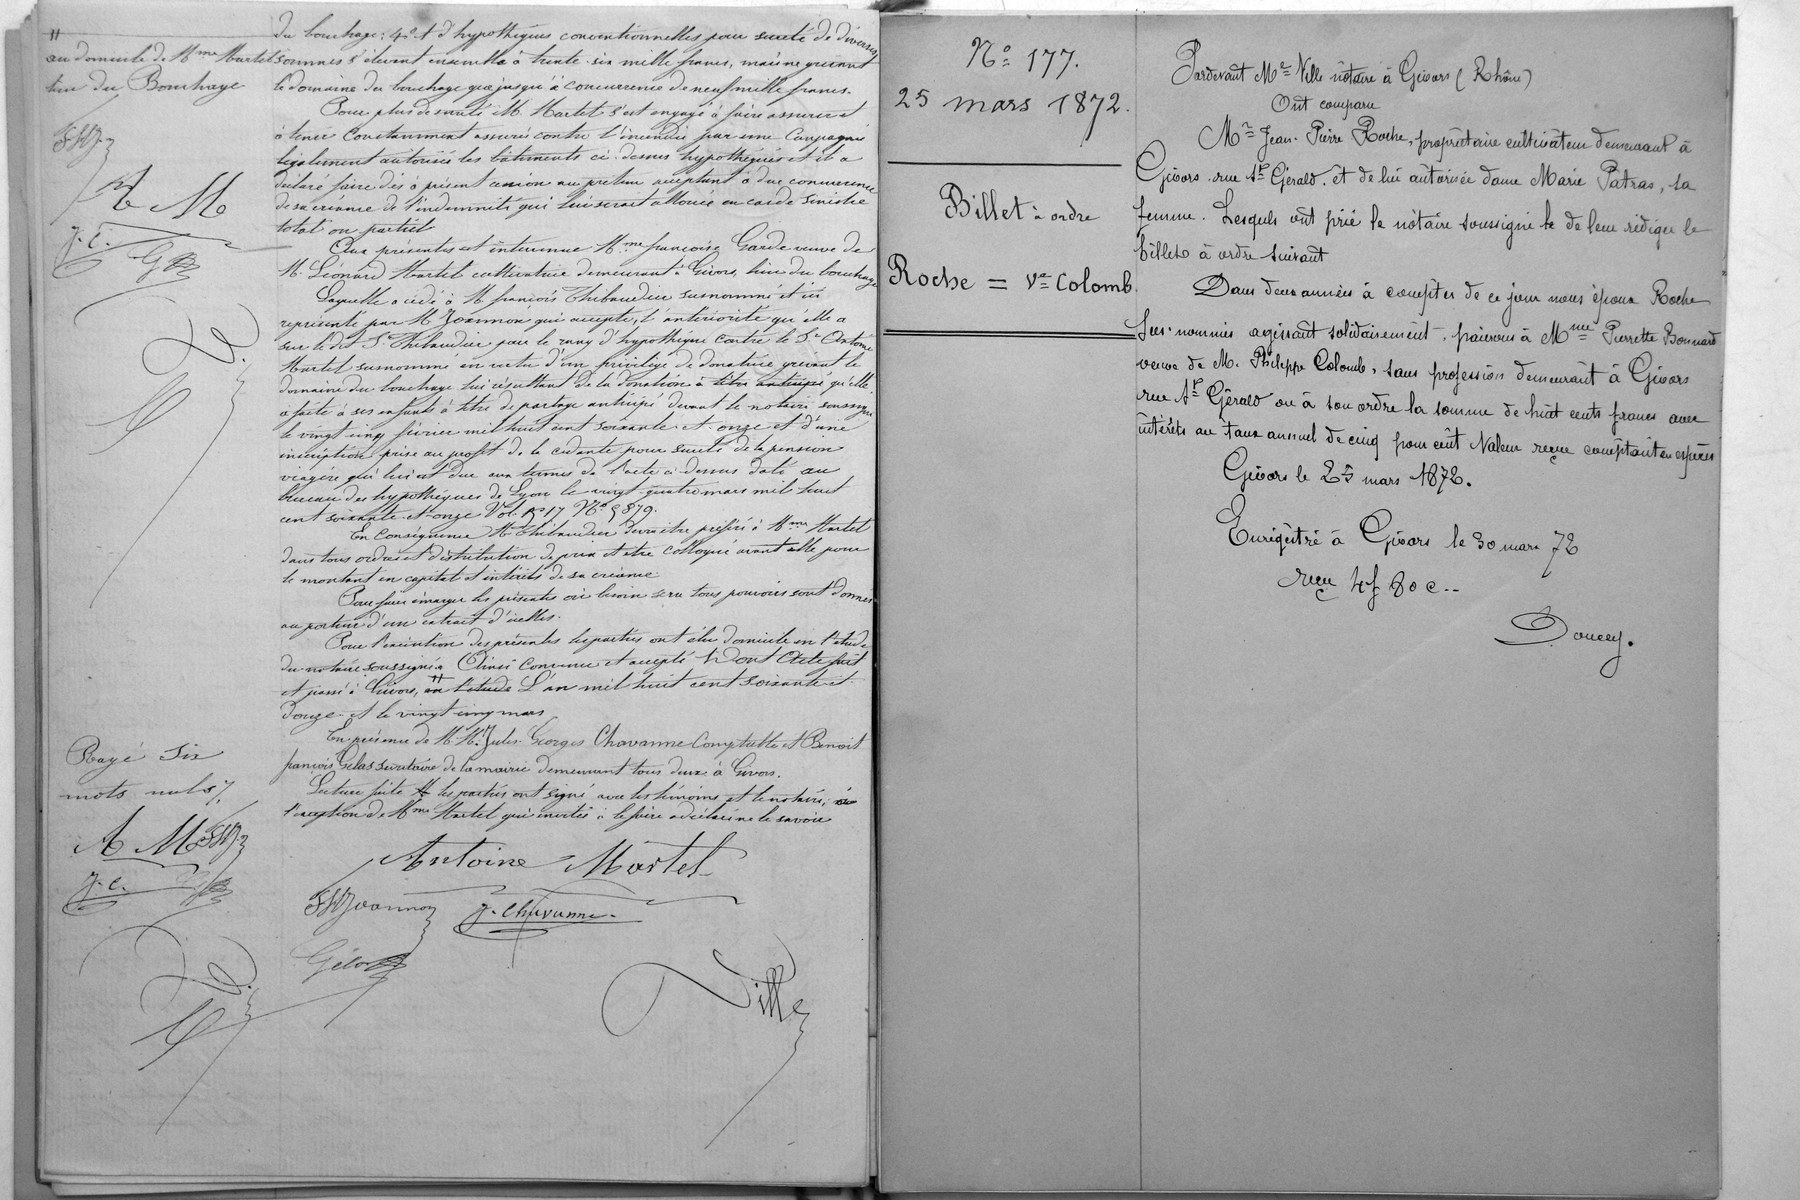 "
au domicile de Mme Martel
lieu du Bouchage
du bouchage; 4° et d'hypothèques conventionnelles pour sureté de diverses
sommes s'élevant ensemble à trente-six mille francs, mais ne grevant
le domaine du bouchage que jusqu'à concurrence de neuf mille francs.
Pour plus de sureté M. Martel s'est engagé à faire assurer et
à tenir constamment assurés contre l'incendie par une Compagnie
légalement autorisée les bâtiments ci-dessus hypothéqués et il a
déclaré faire dès à présent cession au prêteur acceptant à due concurrence
de sa créance de l'indemnité qui lui serait allouée en cas de sinistre
total ou partiel
A M
J. C.
Aux présentes est intervenue Mme françoise Garde veuve de
M. Léonard Martel cultivatrice demeurant à Givors, lieu du bouchage
Laquelle a cédé à M françois Thibaudier susnommé et ici
représenté par M. Joannon qui accepte, l'antériorité qu'elle a
sur le dit Sr Thibaudier pour le rang d'hypothèque contre le Sr Antoine
Martel susnommé en vertu d'un privilège de donature grevant le
domaine du bouchage lui résultant de la donation à titre anticipé qu'elle
a faite à ses enfants à titre de partage anticipé devant le notaire soussigné
le vingt cinq février mil huit cent soixante-et-onze et d'une
inscription prise au profit de la cédante pour sureté de la pension
viagère qui lui est due aux termes de l'acte ci-dessus daté au
bureau des hypothèques de Lyon le vingt-quatre mars mil huit
cent soixante-et-onze Vol. 1217 No 5879.
En conséquence M. Thibaudier devra être préféré à Mme Martel
dans tous ordres et distribution de prix et être colloqué avant elle pour
le montant en capital et intérêts de sa créance
Pour faire émarger les présentes où besoin sera tous pouvoirs sont donnés
au porteur d'un extrait d'icelles.
Pour l'exécution des présentes les parties ont élu domicile en l'étude
du notaire soussigné. Ainsi convenu et accepté Dont Acte fait
et passé à Givors, en l'étude " L'an mil huit cent soixante-et
douze et le vingt cinq mars
En présence de M.M. Jules Georges Chavanne Comptable et Benoit
françois Gelas secrétaire de la mairie demeurant tous deux à Givors.
Lecture faite les parties ont signé avec les témoins et le notaire; à
l'exception de Mme Martel qui invitée à le faire a déclaré ne le savoir
Rayé six
mots nuls
A M
J. C.
Antoine Martel
Joannon J. Chavanne
Gelas
Ville
No 177.
25 mars 1872.
Billet à ordre
Roche = Ve Colomb.
Pardevant Me Ville notaire à Givors (Rhône)
Ont comparu
Mr Jean-Pierre Roche, propriétaire cultivateur demeurant à
Givors rue St Gérald. et de lui autorisée dame Marie Patras, sa
femme. Lesquels ont prié le notaire soussigné de leur rédiger le
billet à ordre suivant
Dans deux années à compter de ce jour nous époux Roche
sus-nommés agissant solidairement, paierons à Mme Pierrette Bonnard
veuve de M. Philippe Colomb, sans profession demeurant à Givors
rue St Gérald ou à son ordre la somme de huit cents francs avec
intérêts au taux annuel de cinq pour cent Valeur reçue comptant en espèces
Givors le 25 mars 1872.
Enregistré à Givors le 30 mars 72
reçu 4f 80 c..
Doucey.